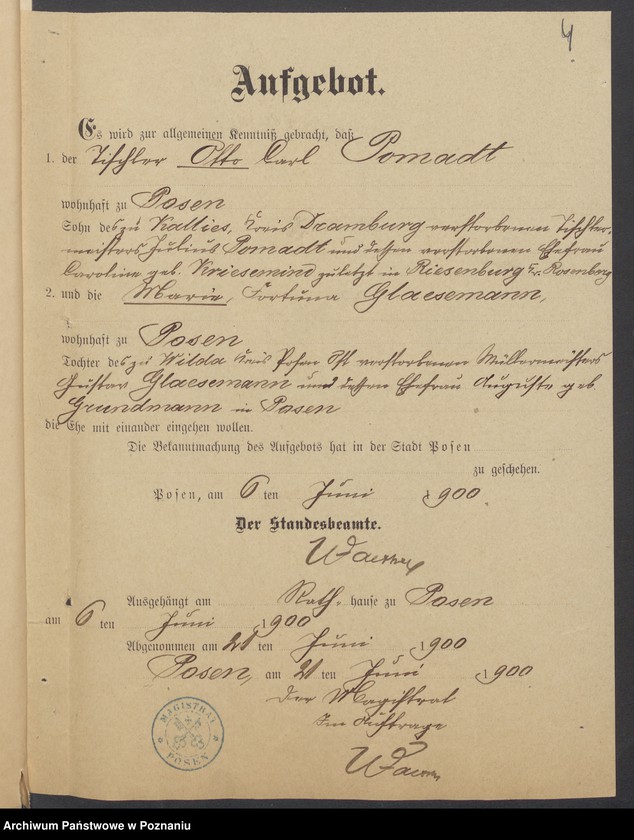 4
Aufgebot.
Es wird zur allgemeinen Kenntniß gebracht, daß
1. der Tischler Otto Carl Pomadt
wohnhaft zu Posen
Sohn des zu Kallies, Kreis Dramburg verstorbenen Tischler-
meisters Julius Pomadt und dessen verstorbenen Ehefrau
Caroline geb. Kriesemind zuletzt in Riesenburg Kr. Rosenberg
2. und die Marie, Fortuna Glaesemann,
wohnhaft zu Posen
Tochter des zu Wilda Kreis Posen Ost verstorbenen Müllermeisters
Gustav Glaesemann und dessen Ehefrau Auguste geb.
Grundmann in Posen
die Ehe mit einander eingehen wollen.
Die Bekanntmachung des Aufgebots hat in der Stadt Posen
zu geschehen.
Posen, am 6 ten Juni 1900.
Der Standesbeamte.
Ausgehängt am Rath-hause zu Posen
am 6 ten Juni 1900
Abgenommen am 21 ten Juni 1900
Posen, am 21 ten Juni 1900
Der Magistrat
Im Auftrage
MAGISTRAT
POSEN
Archiwum Państwowe w Poznaniu